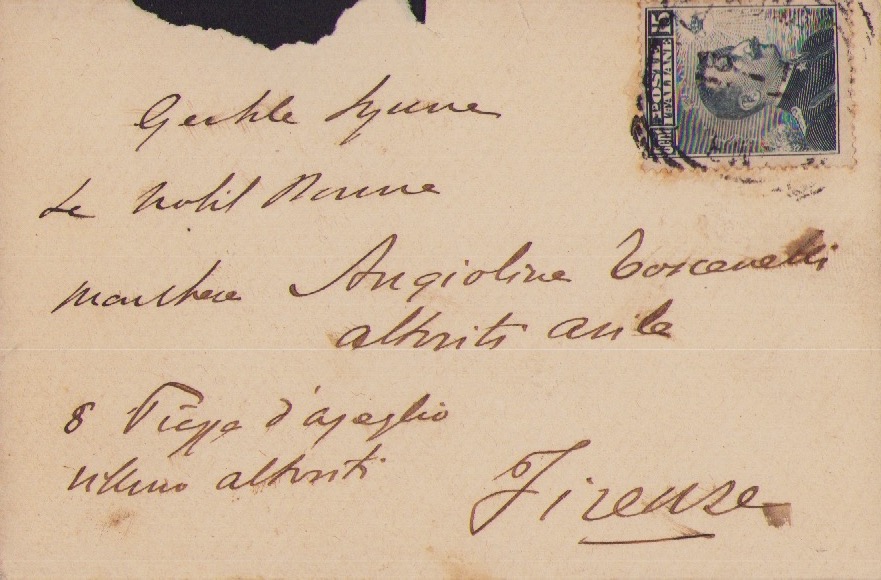 Gentile Signora
La Nobil Donna
Marchesa Angiolina Toscanelli
Altoviti Avila
8 Piazza d'Azeglio
Villino Altoviti
Firenze
POSTE
ITALIANE
15